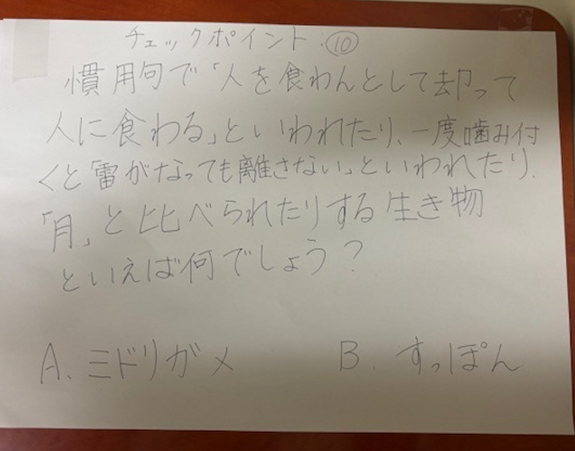 チェックポイント:⑩
慣用句で「人を食わんとして却って
人に食わる」といわれたり、一度噛み付
くと「雷がなっても離さない」といわれたり、
「月」と比べられたりする生き物
といえば何でしょう？
A. ミドリガメ B. すっぽん